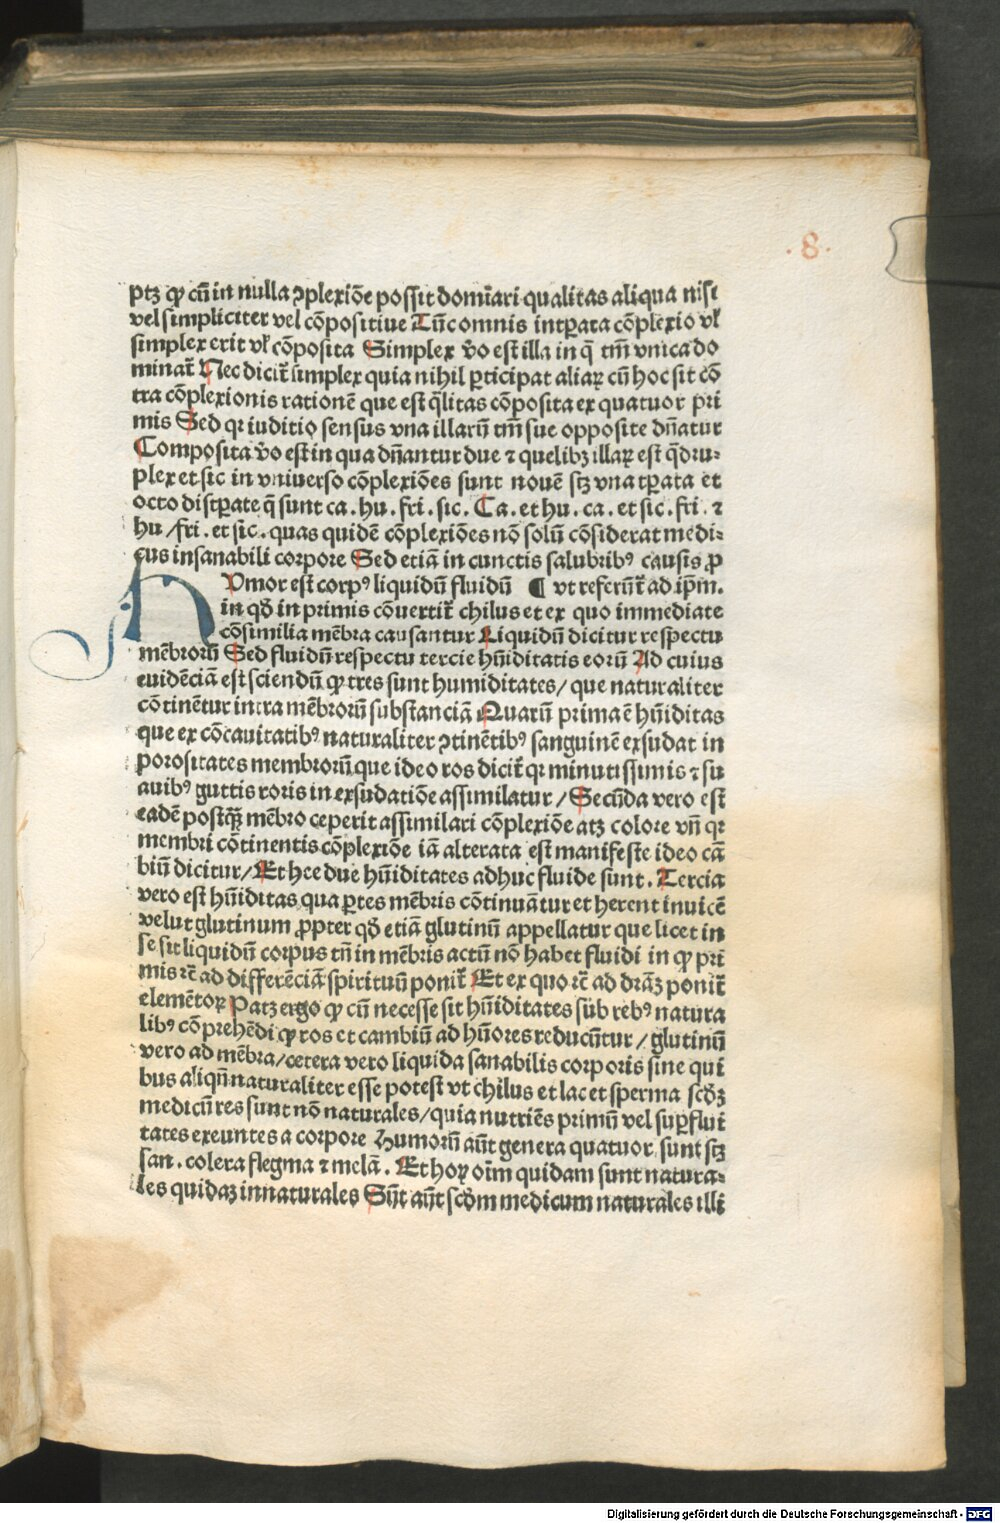 ·8·
ptꝫ ꝙ cū in nulla ꝯplexiōe possit domīari qualitas aliqua nisi
vel simpliciter vel cōpositiue Tūc omnis intꝑata cōplexio vl̓
simplex erit vl̓ cōposita Simplex v̄o est illa in q̄ tm̄ vnica do
minat᷑ Nec dicit᷑ simplex quia nihil ꝑticipat aliaꝝ cū hoc sit cō
tra cōplexionis rationē que est q̄litas cōposita ex quatuor pri
mis Sed qꝛ iuditio sensus vna illarū tm̄ sue opposite dn̄atur
Composita v̄o est in qua dn̄antur due ⁊ quelibꝫ illaꝝ est q̄dru⸗
plex et sic in vniuerso cōplexiōes sunt nouē sꝫ vna tꝑata et
octo distꝑate q̄ sunt ca . hu . fri . sic . Ca . et hu . ca . et sic . fri . ⁊
hu / fri . et sic . quas quidē cōplexiōes nō solū cōsiderat medi⸗
cus in sanabili corpore Sed etiā in cunctis salubribꝰ causis ꝓ
HVmor est corpꝰ liquidū fluidū ¶ vt referūt᷑ ad ip̄m.
in qd̄ in primis cōuertit᷑ chilus et ex quo immediate
cōsimilia mēbra causantur Liquidū dicitur respectu
mēbrorū Sed fluidū respectu tercie hūiditatis eorū Ad cuius
euidēciā est sciendū ꝙ tres sunt humiditates / que naturaliter
cōtinētur intra mēbrorū substanciā Quarū prima ē hūiditas
que ex cōcauitatibꝰ naturaliter ꝯtinētibꝰ sanguinē exsudat in
porositates membrorū que ideo ros dicit᷑ qꝛ minutissimis ⁊ su
auibꝰ guttis roris in exsudatiōe assimilatur / Secūda vero est
eadē postq̄ꝫ mēbro ceperit assimilari cōplexiōe atꝫ colore vn̄ qꝛ
membri cōtinentis cōplexiōe iā alterata est manifeste ideo cā
biū dicitur / Et hee due hūiditates adhuc fluide sunt . Tercia
vero est hūiditas qua ꝑtes mēbris cōtinuātur et herent inuicē
velut glutinum ꝓpter qd̄ etiā glutinū appellatur que licet in
se sit liquidū corpus tn̄ in mēbris actū nō habet fluidi in ꝙ pri
mis rē ad differēciā spirituū ponit᷑ Et ex quo rē ad dr̄aꝫ ponit᷑
elemētoꝝ Patꝫ ergo ꝙ cū necesse sit hūiditates sub rebꝰ natura
libꝰ cōprehēdi ꝙ ros et cambiū ad hūores reducūtur / glutinū
vero ad mēbra / cetera vero liquida sanabilis corporis sine qui
bus aliqn̄ naturaliter esse potest vt chilus et lac et sperma scd̄ꝫ
medicū res sunt nō naturales / quia nutriēs primū vel suꝑflui
tates exeuntes a corpore Humorū aūt genera quatuor sunt sꝫ
san . colera flegma ⁊ melā . Et hoꝝ oīm quidam sunt natura⸗
les quidaꝫ innaturales Sūt aūt scd̄m medicum naturales illi
Digitalisierung gefördert durch die Deutsche Forschungsgemeinschaft - DFG